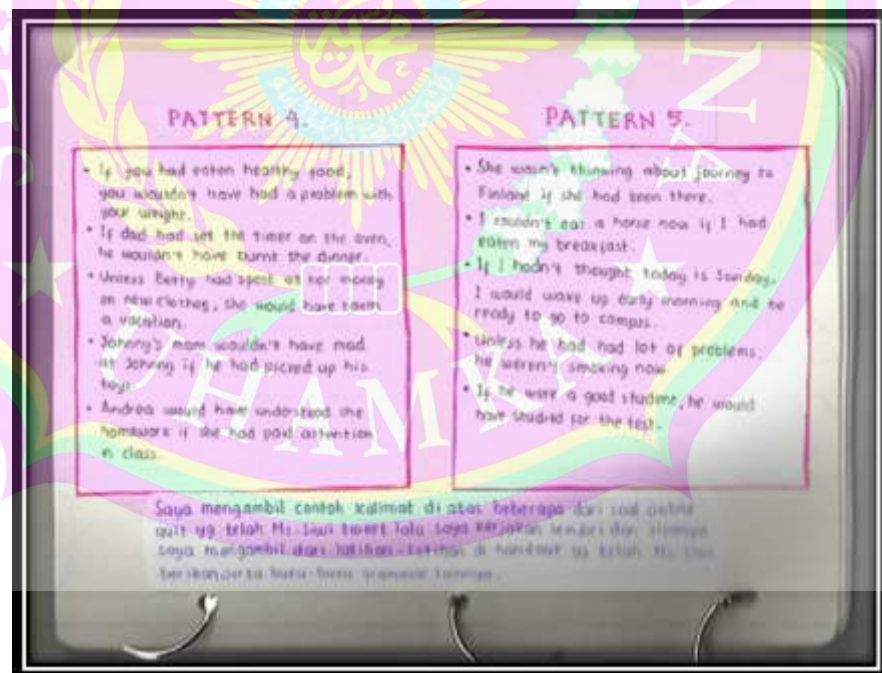 PATTERN 4.
• If you had eaten healthy food,
you wouldn't have had a problem with
your weight.
• If dad had set the timer on the oven,
he wouldn't have burnt the dinner.
• Unless Betty had spent all her money
on new clothes, she would have taken
a vacation.
• Johnny's mom wouldn't have mad
at Johnny if he had picked up his
toys.
• Andrea would have understood the
homework if she had paid attention
in class.
PATTERN 5.
• She wasn't thinking about journey to
Finland if she had been there.
• I couldn't eat a horse now if I had
eaten my breakfast.
• If I hadn't thought today is Sunday,
I would wake up early morning and be
ready to go to campus.
• Unless he had had lot of problems,
he weren't smoking now.
• If he were a good student, he would
have studied for the test.
Saya mengambil contoh kalimat di atas beberapa dari soal online
quit yg telah Ms. Siwi tweet lalu saya kerjakan sendiri dan sisanya
saya mengambil dari latihan-latihan di handout yg telah Ms. Siwi
berikan serta buku-buku grammar lainnya.
UHAMKA